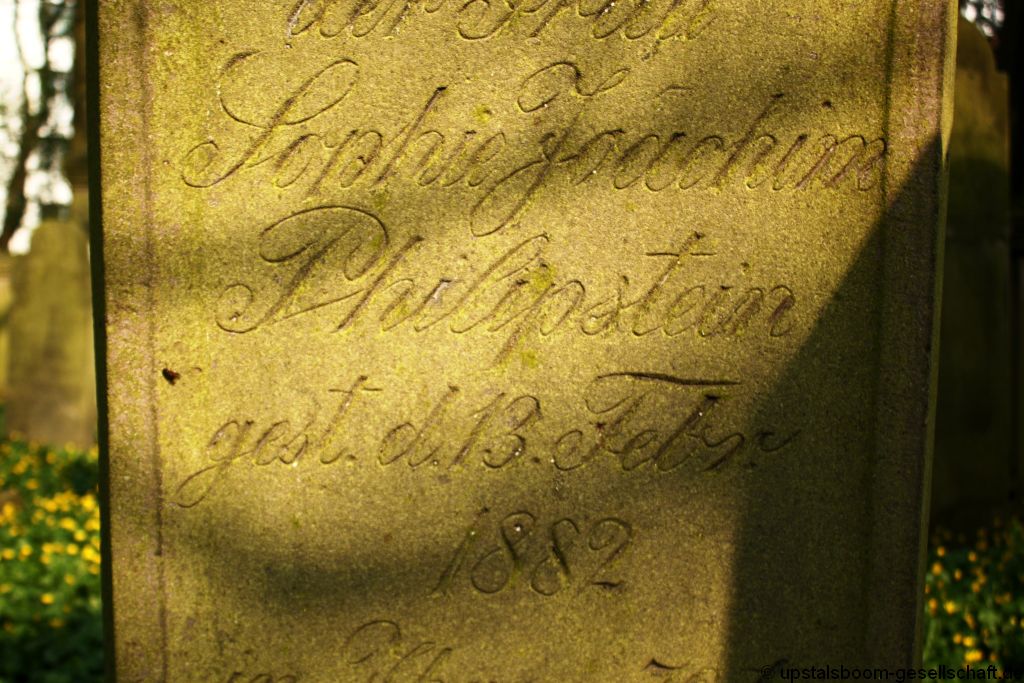 der Frau
Sophie Joachim
Philipstein
gest. d. 13. Febr.
1882
© upstalsboom-gesellschaft.de